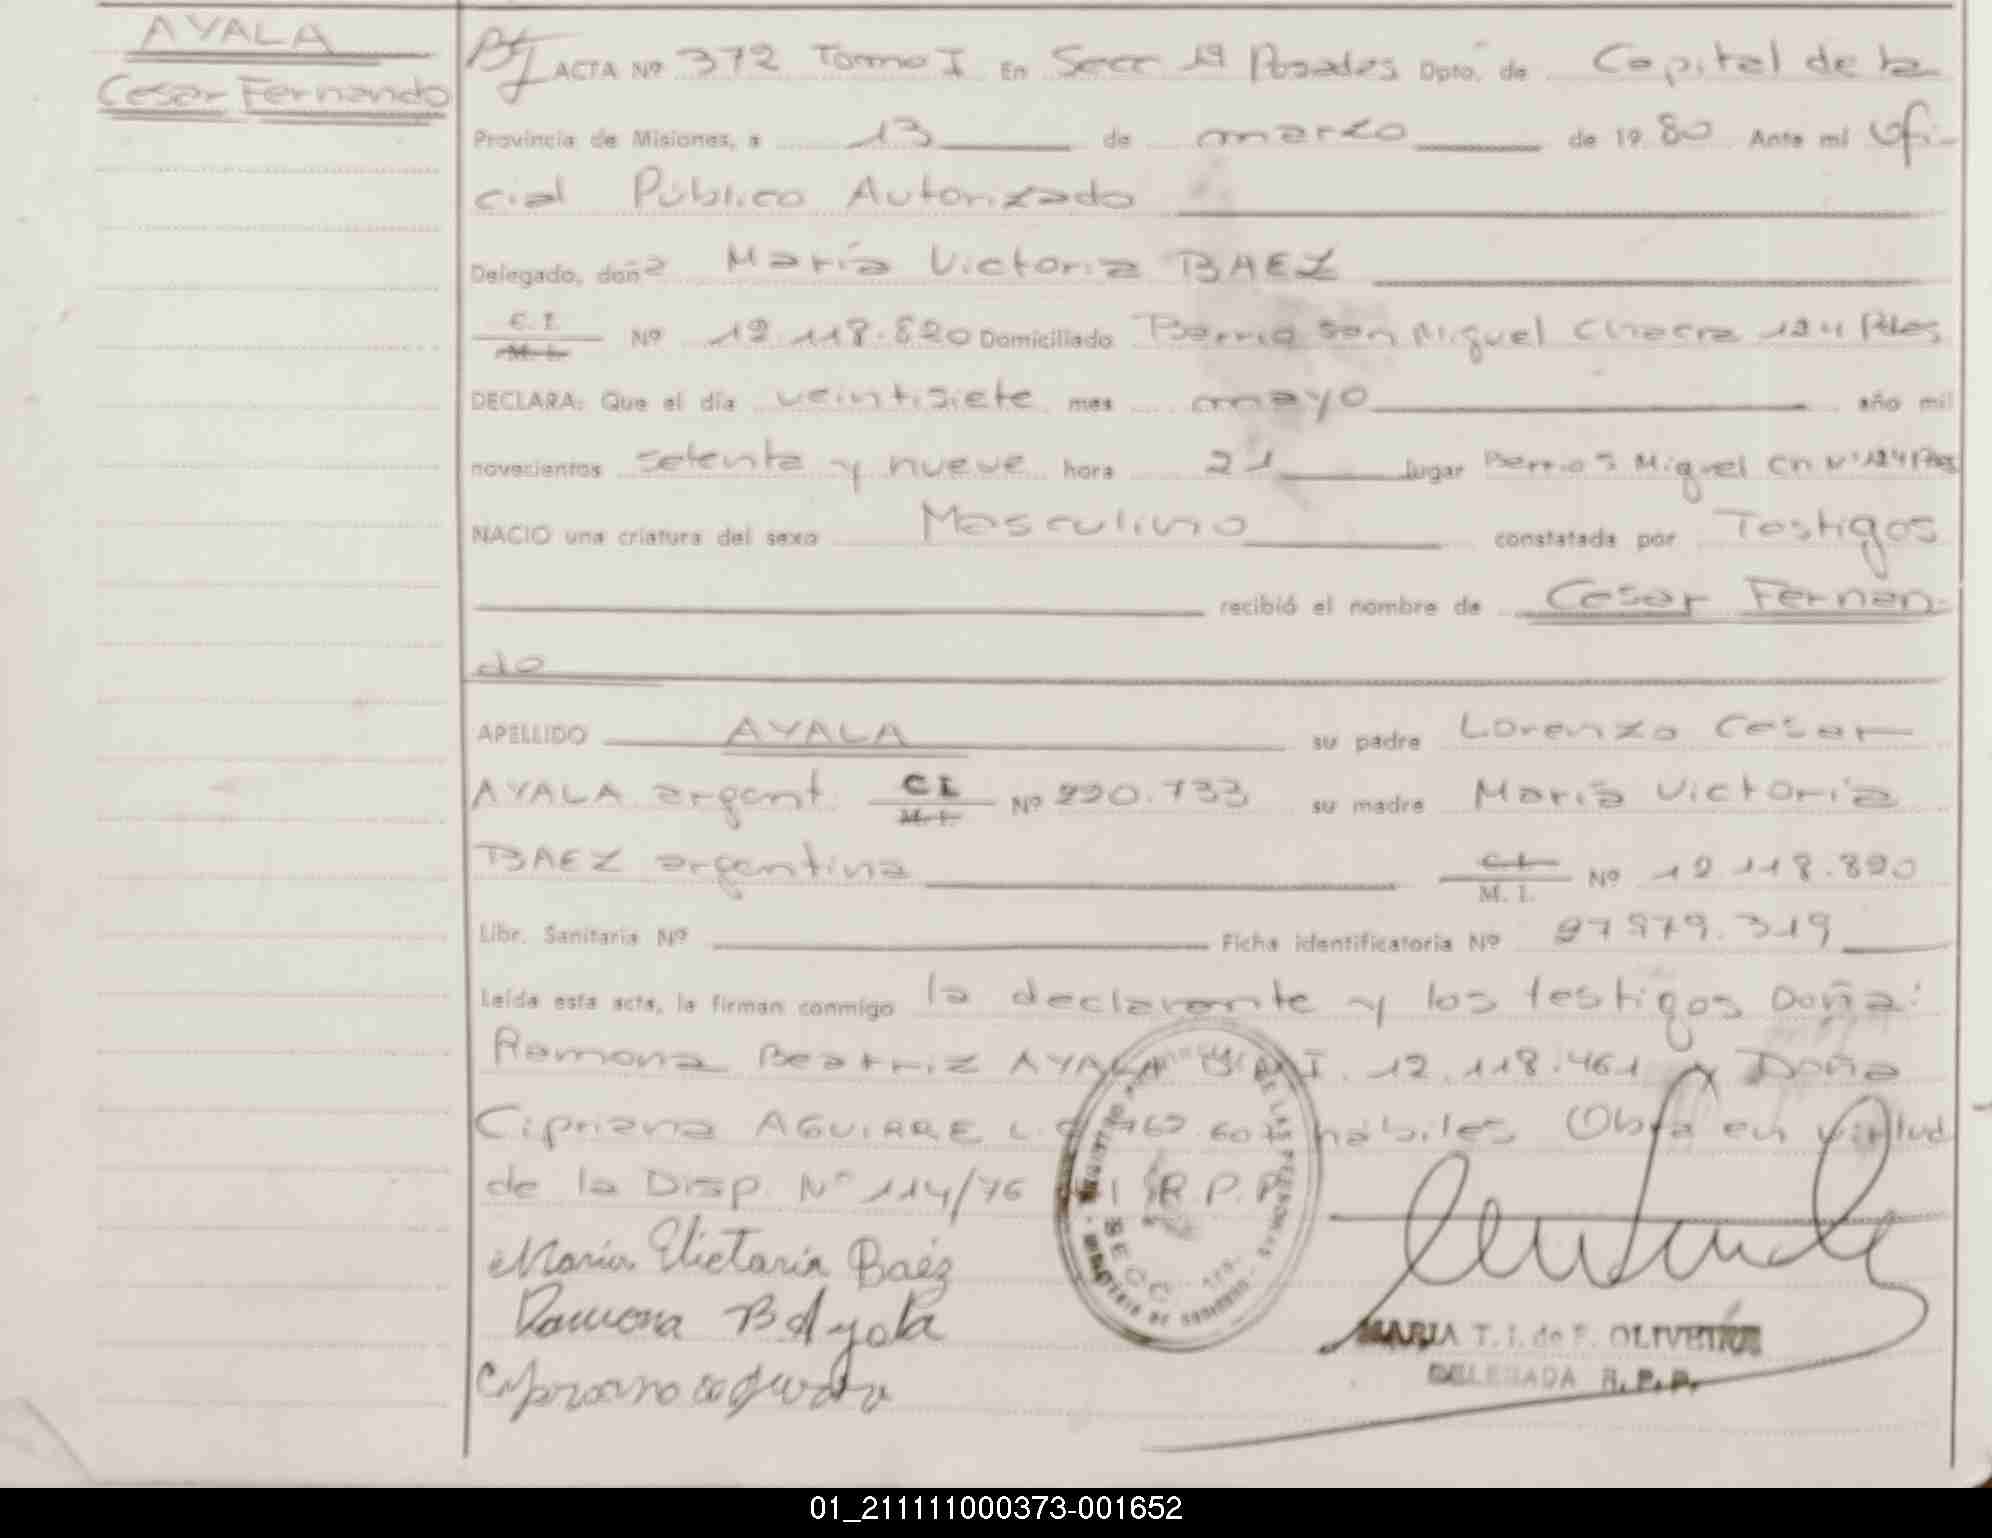 AYALA
Cesar Fernando
ACTA Nº 372 Tomo I En Secc 1ª Posadas Dpto. de Capital de la
Provincia de Misiones, a 13 de marzo de 1980 Ante mi Ofi-
cial Público Autorizado
Delegado, doña María Victoria BAEZ
C. I.
M. I. Nº 12.118.820 Domiciliado Barrio San Miguel Chacra 124 Pdas
DECLARA: Que el día veintisiete mes mayo año mil
novecientos setenta y nueve hora 21 lugar Barrio S Miguel Ch Nº 124 Pdas
NACIO una criatura del sexo Masculino constatada por Testigos
recibió el nombre de Cesar Fernan-
do
APELLIDO AYALA su padre Lorenzo Cesar
AYALA argent. C I
M. I. Nº 220.733 su madre María Victoria
BAEZ argentina C. I.
M. I. Nº 12.118.820
Libr. Sanitaria Nº Ficha identificatoria Nº 27979.319
Leída esta acta, la firman conmigo la declarante y los testigos Doña:
Ramona Beatriz AYALA I. 12.118.461 y Doña
Cipriana AGUIRRE L.C. hábiles Obra en virtud
de la Disp. Nº 114/76 R.P.P.
María Victoria Baéz
Ramona B Ayala
MARIA T. I. de F. OLIVEIRA
DELEGADA R.P.P.
01_211111000373-001652